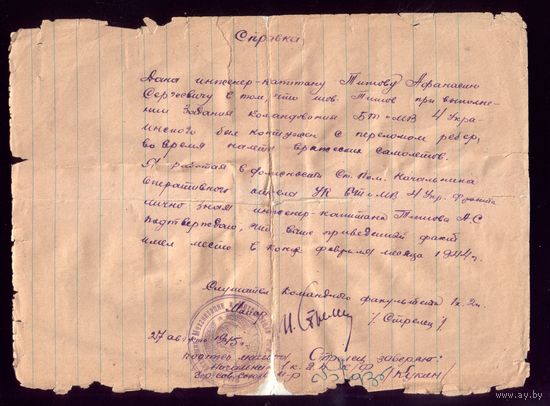 Справка
Дана инженер-капитану Титову Афанасию
Сергеевичу в том, что тов. Титов при выполне-
нии задания командования БТ и МВ 4 Укра-
инского был контужен с переломом ребер,
во время налета вражеских самолетов.
Я работая в должности Ст. Пом. Начальника
оперативного отдела УК БТ и МВ 4 Укр. Фронта
лично зная инженер-капитана Титова А.С
подтверждаю, что выше приведенный факт
имел место в конце февраля месяца 1944г.
Слушатель Командного факультета 1к. 2н.
Майор /Стрелец/
27 августа 1945г.
подпись майора Стрелец заверяю:
Начальник 1к. К/Ф
Гер. Сов. Союза /Кукин/
www.ay.by